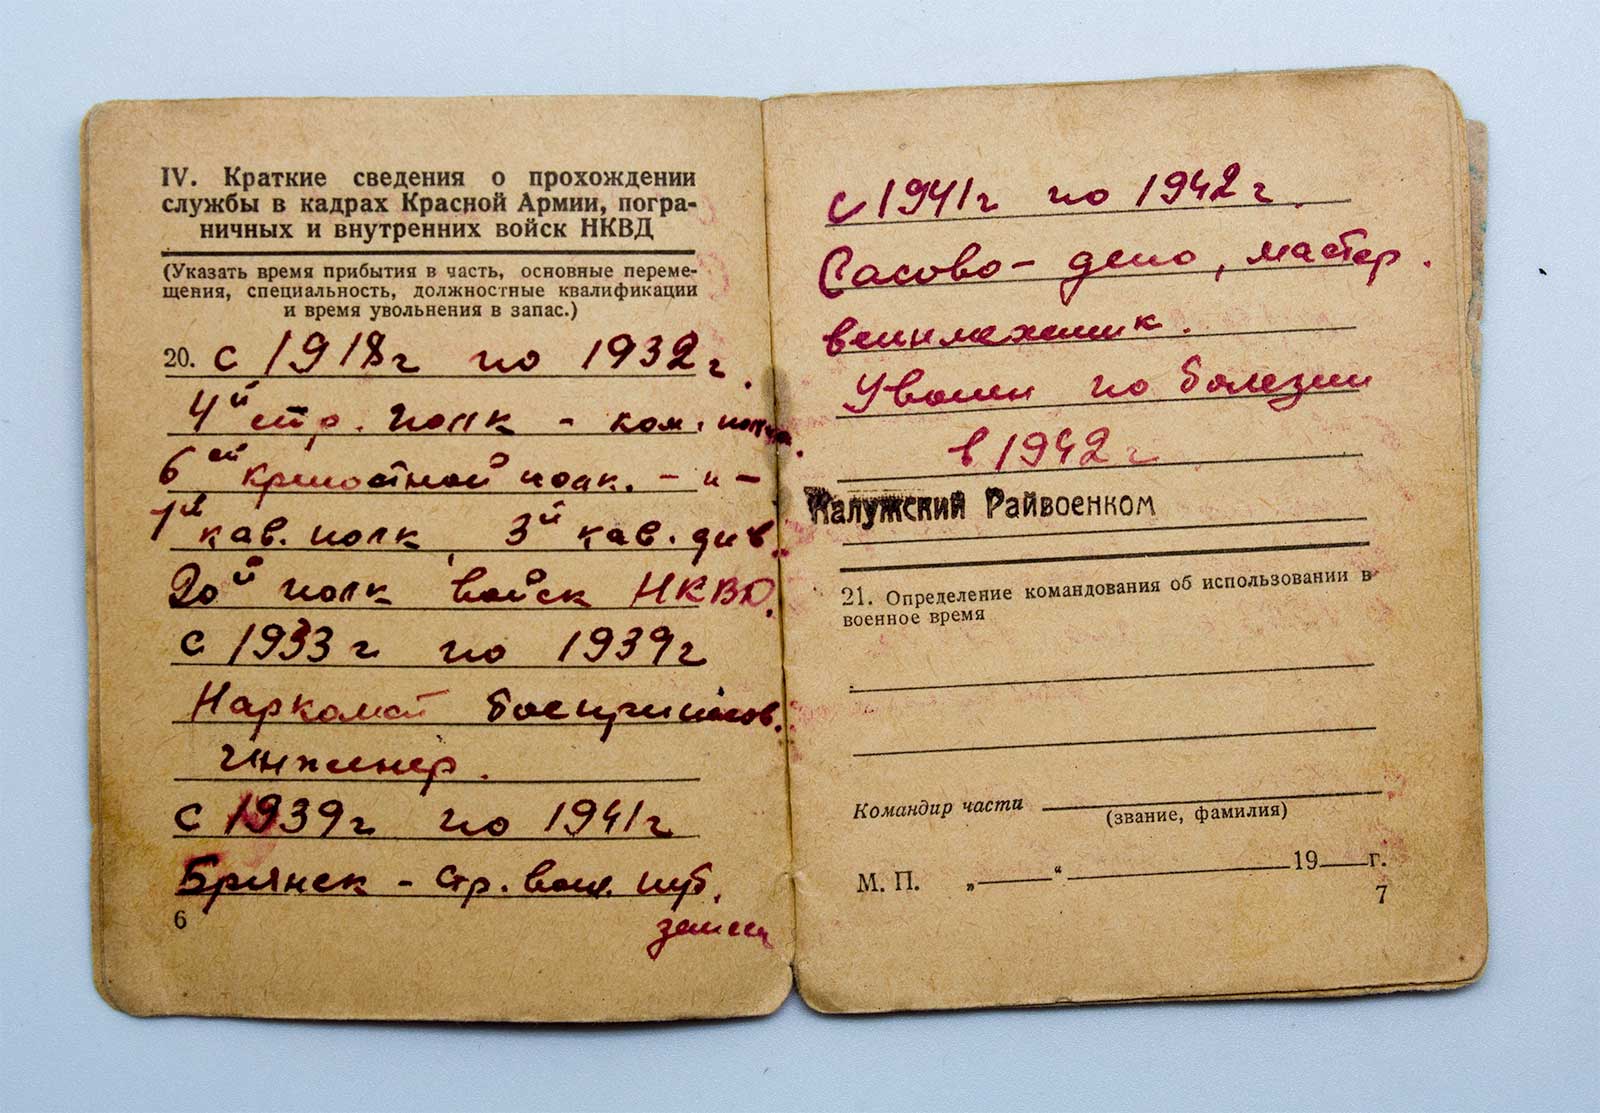 IV. Краткие сведения о прохождении
службы в кадрах Красной Армии, погра-
ничных и внутренних войск НКВД
(Указать время прибытия в часть, основные переме-
щения, специальность, должностные квалификации
и время увольнения в запас.)
20. с 1918г по 1932г.
4й стр. полк - ком. полка.
6ей крепостной полк. - и -
1й кав. полк, 3й кав. див.
20й полк войск НКВД.
с 1933г по 1939г
Наркомат боеприпасов.
инженер.
с 1939г по 1941г
Брянск - стр.
6
с 1941г по 1942г.
Сасово - депо, мастер.
Уволен по болезни
в 1942г
Калужский Райвоенком
21. Определение командования об использовании в
военное время
Командир части
(звание, фамилия)
М. П. „ “ 19 г.
7